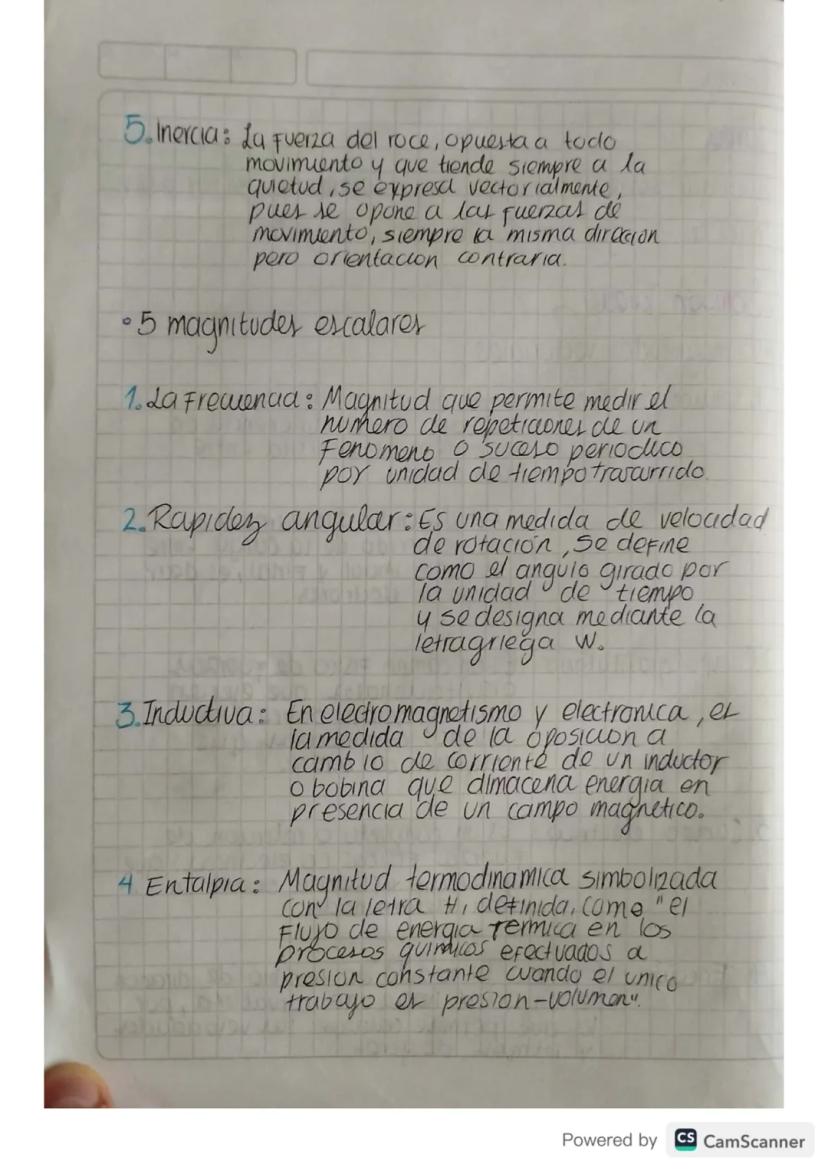 5. Inercia: La fuerza del roce, opuesta a todo
movimiento y que tiende siempre a la
quietud, se expresa vectorialmente,
pues se opone a las fuerzas de
movimiento, siempre la misma dirección
pero orientacion contraria.
• 5 magnitudes escalares
1. La Frecuencia: Magnitud que permite medir el
numero de repeticiones de un
Fenomeno o suceso periodico
por unidad de tiempo trascurrido.
2. Rapidez angular: Es una medida de velocidad
de rotación, se define
como el angulo girado por
la unidad de tiempo
y se designa mediante la
letra griega W.
3. Inductiva: En electromagnetismo y electronica, es
la medida de la oposicion a
cambio de corriente de un inductor
o bobina que almacena energia en
presencia de un campo magnetico.
4 Entalpia: Magnitud termodinamica simbolizada
con la letra H, definida, como "el
Flujo de energia termica en los
procesos quimicos efectuados a
presion constante cuando el unico
trabajo es presion-volumen".
Powered by CS CamScanner